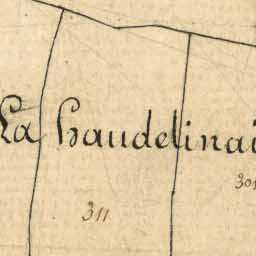 La haudelinai
301
311